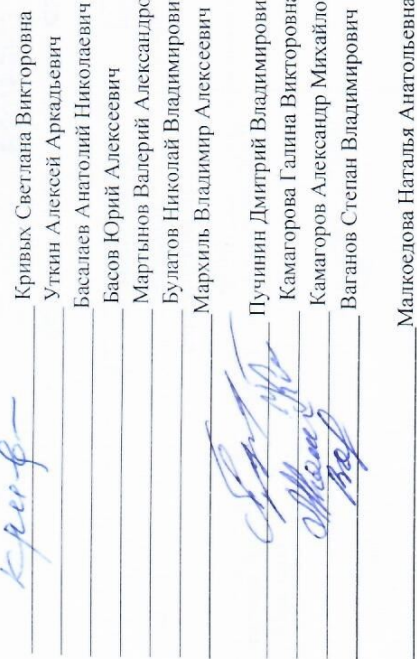 Кривых Светлана Викторовна
Уткин Алексей Аркадьевич
Басалаев Анатолий Николаевич
Басов Юрий Алексеевич
Мартынов Валерий Александро
Булатов Николай Владимирови
Мархиль Владимир Алексеевич
Пучинин Дмитрий Владимирови
Камагорова Галина Викторовна
Камагоров Александр Михайло
Ваганов Степан Владимирович
Малкоедова Наталья Анатольевна